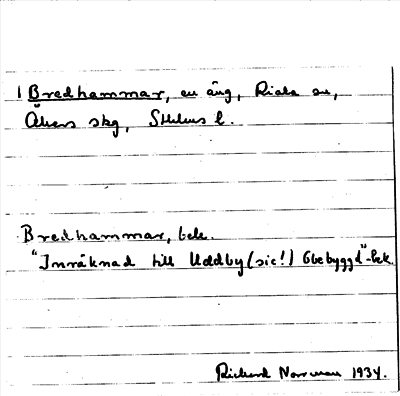 1 Bredhammar, en äng, Riala sn,
Åkers skg, Sthlms l.
Bredhammar, bek.
"Inräknad till Uddby (sic!) Obebyggd"-Bek.
Richard Norrman 1934.